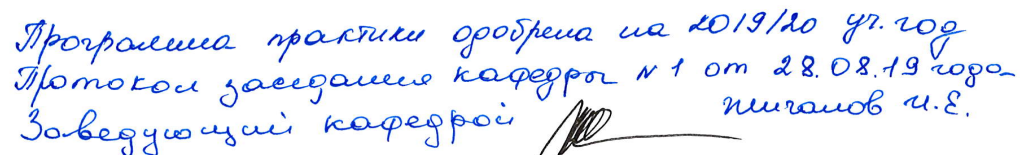 Программа практики одобрена на 2019/20 уч. год
Протокол заседания кафедры №1 от 28.08.19 года
Заведующий кафедрой Жигалов И.Е.